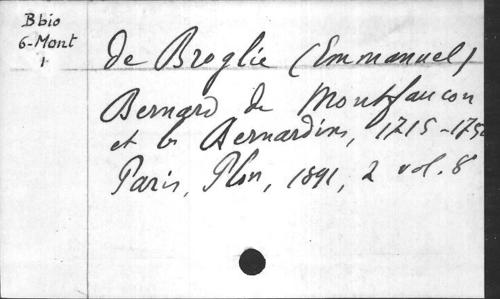 Bbio
6-Mont
1
de Broglie (Emmanuel)
Bernard de Montfaucon
et les Bernardins, 1715-1750
Paris, Plon, 1891, 2 vol. 8°